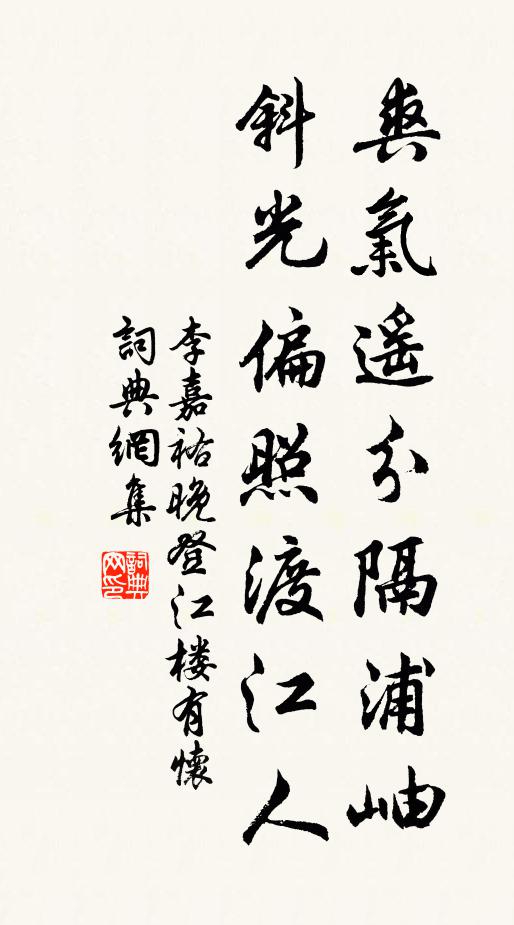 爽氣遥分隔浦岫
斜光偏照渡江人
李嘉祐晚登江楼有懷
詞典網集
詞典網印